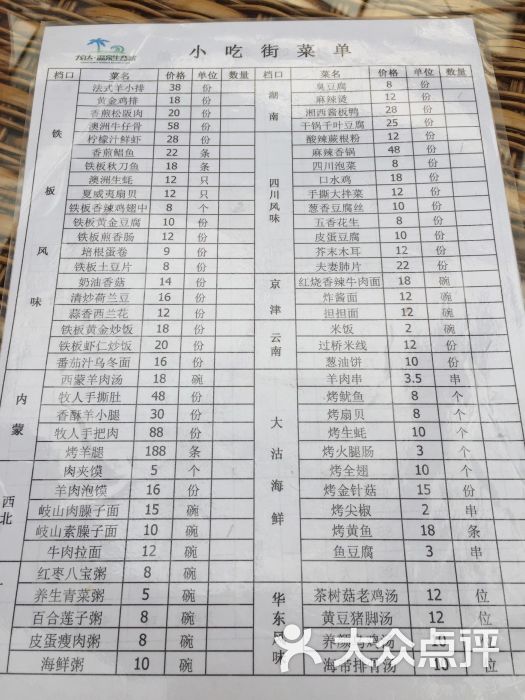 小吃街菜单
档口 菜名 价格 单位 数量
铁板风味
法式羊小排 38 份
黄金鸡排 18 份
香煎松阪肉 20 份
澳洲牛仔骨 58 份
柠檬汁鲜虾 28 份
香煎鲳鱼 22 条
铁板秋刀鱼 18 条
澳洲生蚝 12 只
夏威夷扇贝 12 只
铁板香辣鸡翅中 8 个
铁板黄金豆腐 10 份
铁板煎香肠 12 份
培根蛋卷 9 份
铁板土豆片 8 份
奶油香菇 14 份
清炒荷兰豆 16 份
蒜香西兰花 12 份
铁板黄金炒饭 18 份
铁板虾仁炒饭 20 份
番茄汁乌冬面 16 份
内蒙
西蒙羊肉汤 18 碗
牧人手撕肚 48 份
香酥羊小腿 30 份
牧人手把肉 88 份
烤羊腿 188 条
西北
肉夹馍 5 个
羊肉泡馍 16 份
岐山肉臊子面 15 碗
岐山素臊子面 10 碗
牛肉拉面 12 碗
红枣八宝粥 8 碗
养生青菜粥 5 碗
百合莲子粥 8 碗
皮蛋瘦肉粥 8 碗
海鲜粥 10 碗
档口 菜名 价格 单位 数量
湖南
臭豆腐 8 份
麻辣烫 12 份
湘西酱板鸭 28 份
干锅千叶豆腐 25 份
酸辣蕨根粉 12 份
四川风味
麻辣香锅 48 份
四川泡菜 8 份
口水鸡 18 份
手撕大拌菜 12 份
葱香豆腐丝 10 份
五香花生 8 份
皮蛋豆腐 10 份
芥末木耳 12 份
夫妻肺片 22 份
京津
红烧香辣牛肉面 18 碗
炸酱面 12 碗
担担面 12 碗
云南
米饭 2 碗
过桥米线 12 份
葱油饼 10 份
大沽海鲜
羊肉串 3.5 串
烤鱿鱼 8 个
烤扇贝 8 个
烤生蚝 10 个
烤火腿肠 3 个
烤全翅 10 个
烤金针菇 15 份
烤尖椒 2 串
烤黄鱼 18 条
鱼豆腐 3 串
华东风味
茶树菇老鸡汤 12 位
黄豆猪脚汤 12 位
养颜 鸡汤 10 位
海带排骨汤 10 位
大众点评